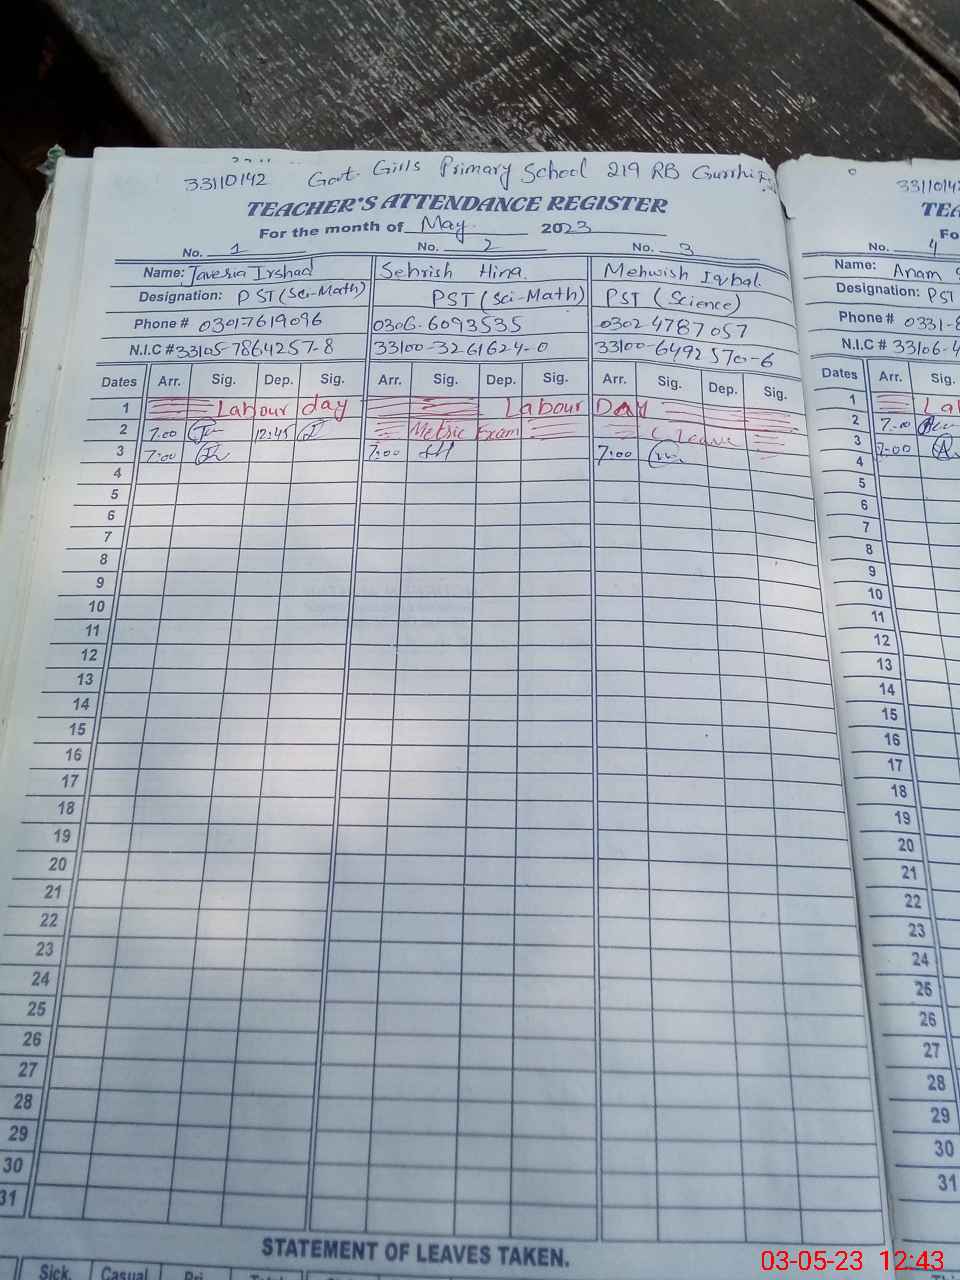 33110142 Govt. Girls Primary School 219 RB Gurrhi
TEACHER'S ATTENDANCE REGISTER
For the month of May 2023
No. 1 No. 2 No. 3
Name: Javeria Irshad Sehrish Hina. Mehwish Iqbal.
Designation: PST (Sci-Math) PST (Sci-Math) PST (Science)
Phone # 03017619096 0306-6093535 0302 4787057
N.I.C # 33105-7864257-8 33100-3261624-0 33100-6492570-6
Dates Arr. Sig. Dep. Sig. Arr. Sig. Dep. Sig. Arr. Sig. Dep. Sig.
1 Labour day Labour Day
2 7:00 12:45 Metric Exam C leave
3 7:00 7:00 7:00
4
5
6
7
8
9
10
11
12
13
14
15
16
17
18
19
20
21
22
23
24
25
26
27
28
29
30
31
STATEMENT OF LEAVES TAKEN.
Sick. Casual
33110142
TEA
Fo
No. 4
Name: Anam
Designation: PST
Phone # 0331-8
N.I.C # 33106-4
Dates Arr. Sig.
1 La
2 7:00
3 7:00
4
5
6
7
8
9
10
11
12
13
14
15
16
17
18
19
20
21
22
23
24
25
26
27
28
29
30
31
03-05-23 12:43